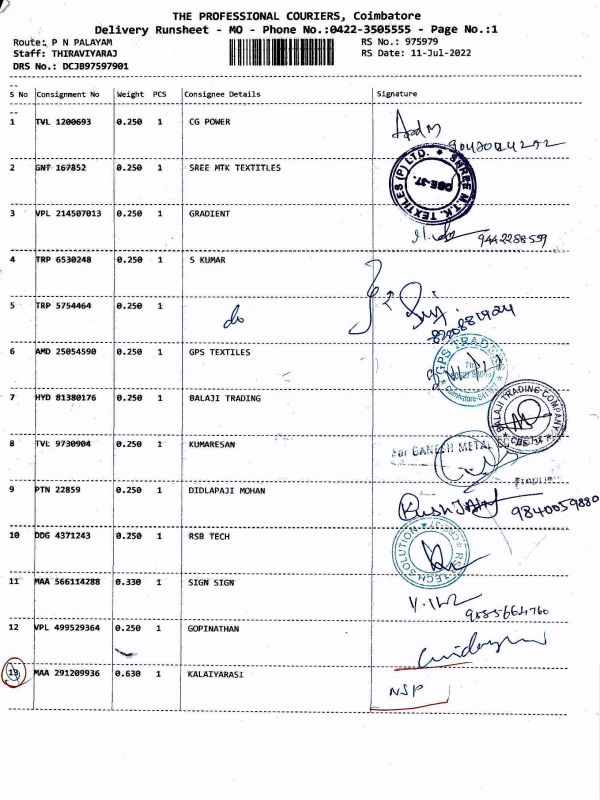 THE PROFESSIONAL COURIERS, Coimbatore
Delivery Runsheet - MO - Phone No.:0422-3505555 - Page No.:1
Route: P N PALAYAM RS No.: 975979
Staff: THIRAVIYARAJ RS Date: 11-Jul-2022
DRS No.: DCJB97597901
S No Consignment No Weight PCS Consignee Details Signature
1 TVL 1200693 0.250 1 CG POWER
2 GNT 167852 0.250 1 SREE MTK TEXTITLES
SHREE M.T.K. TEXTILES (P) LTD.
CBE-37.
3 VPL 214507013 0.250 1 GRADIENT
9442288559
4 TRP 6530248 0.250 1 S KUMAR
5 TRP 5754464 0.250 1 do
8220881924
6 AMD 25054590 0.250 1 GPS TEXTILES
GPS TRADERS
7 HYD 81380176 0.250 1 BALAJI TRADING
BALAJI TRADING COMPANY
8 TVL 9730904 0.250 1 KUMARESAN
For GANESH METAL
9 PTN 22859 0.250 1 DIDLAPAJI MOHAN
9840059880
10 DDG 4371243 0.250 1 RSB TECH
RSB TECH SOLUTION
CBE-37
11 MAA 566114288 0.330 1 SIGN SIGN
12 VPL 499529364 0.250 1 GOPINATHAN
13 MAA 291209936 0.630 1 KALAIYARASI
NSP